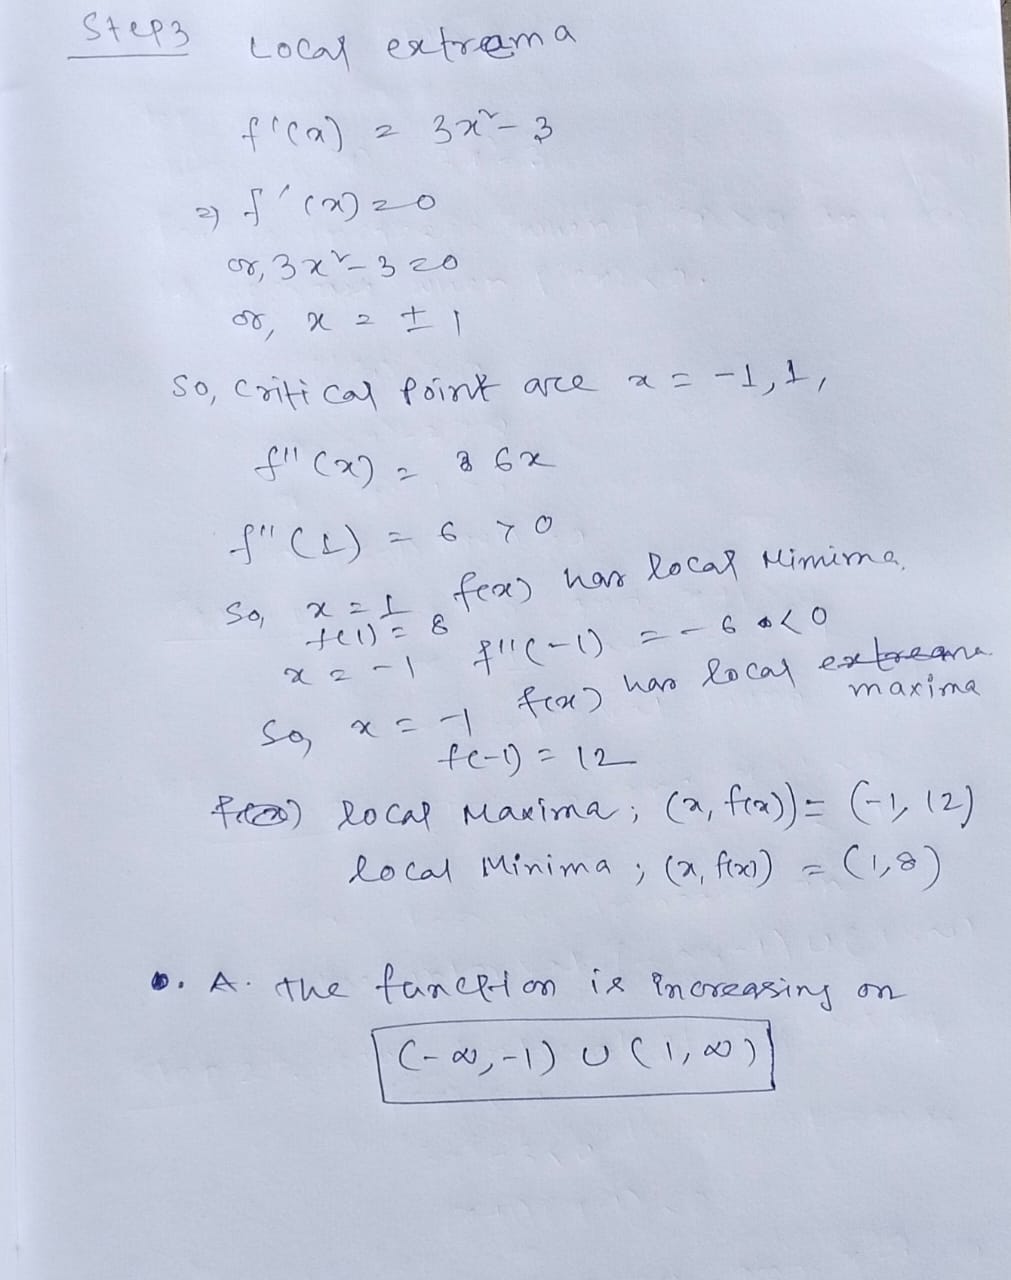 Step3 Local extrema
f'(x) = 3x² - 3
⇒ f'(x) = 0
or, 3x² - 3 = 0
or, x = ± 1
So, critical point are x = -1, 1,
f''(x) = 6x
f''(1) = 6 > 0
So, x = 1 f(x) has local Minima.
f(1) = 8
x = -1 f''(-1) = - 6 < 0
So, x = -1 f(x) has local extreama maxima
f(-1) = 12
f(x) local Maxima; (x, f(x)) = (-1, 12)
local Minima; (x, f(x)) = (1, 8)
A. The function is increasing on
(-∞, -1) ∪ (1, ∞)